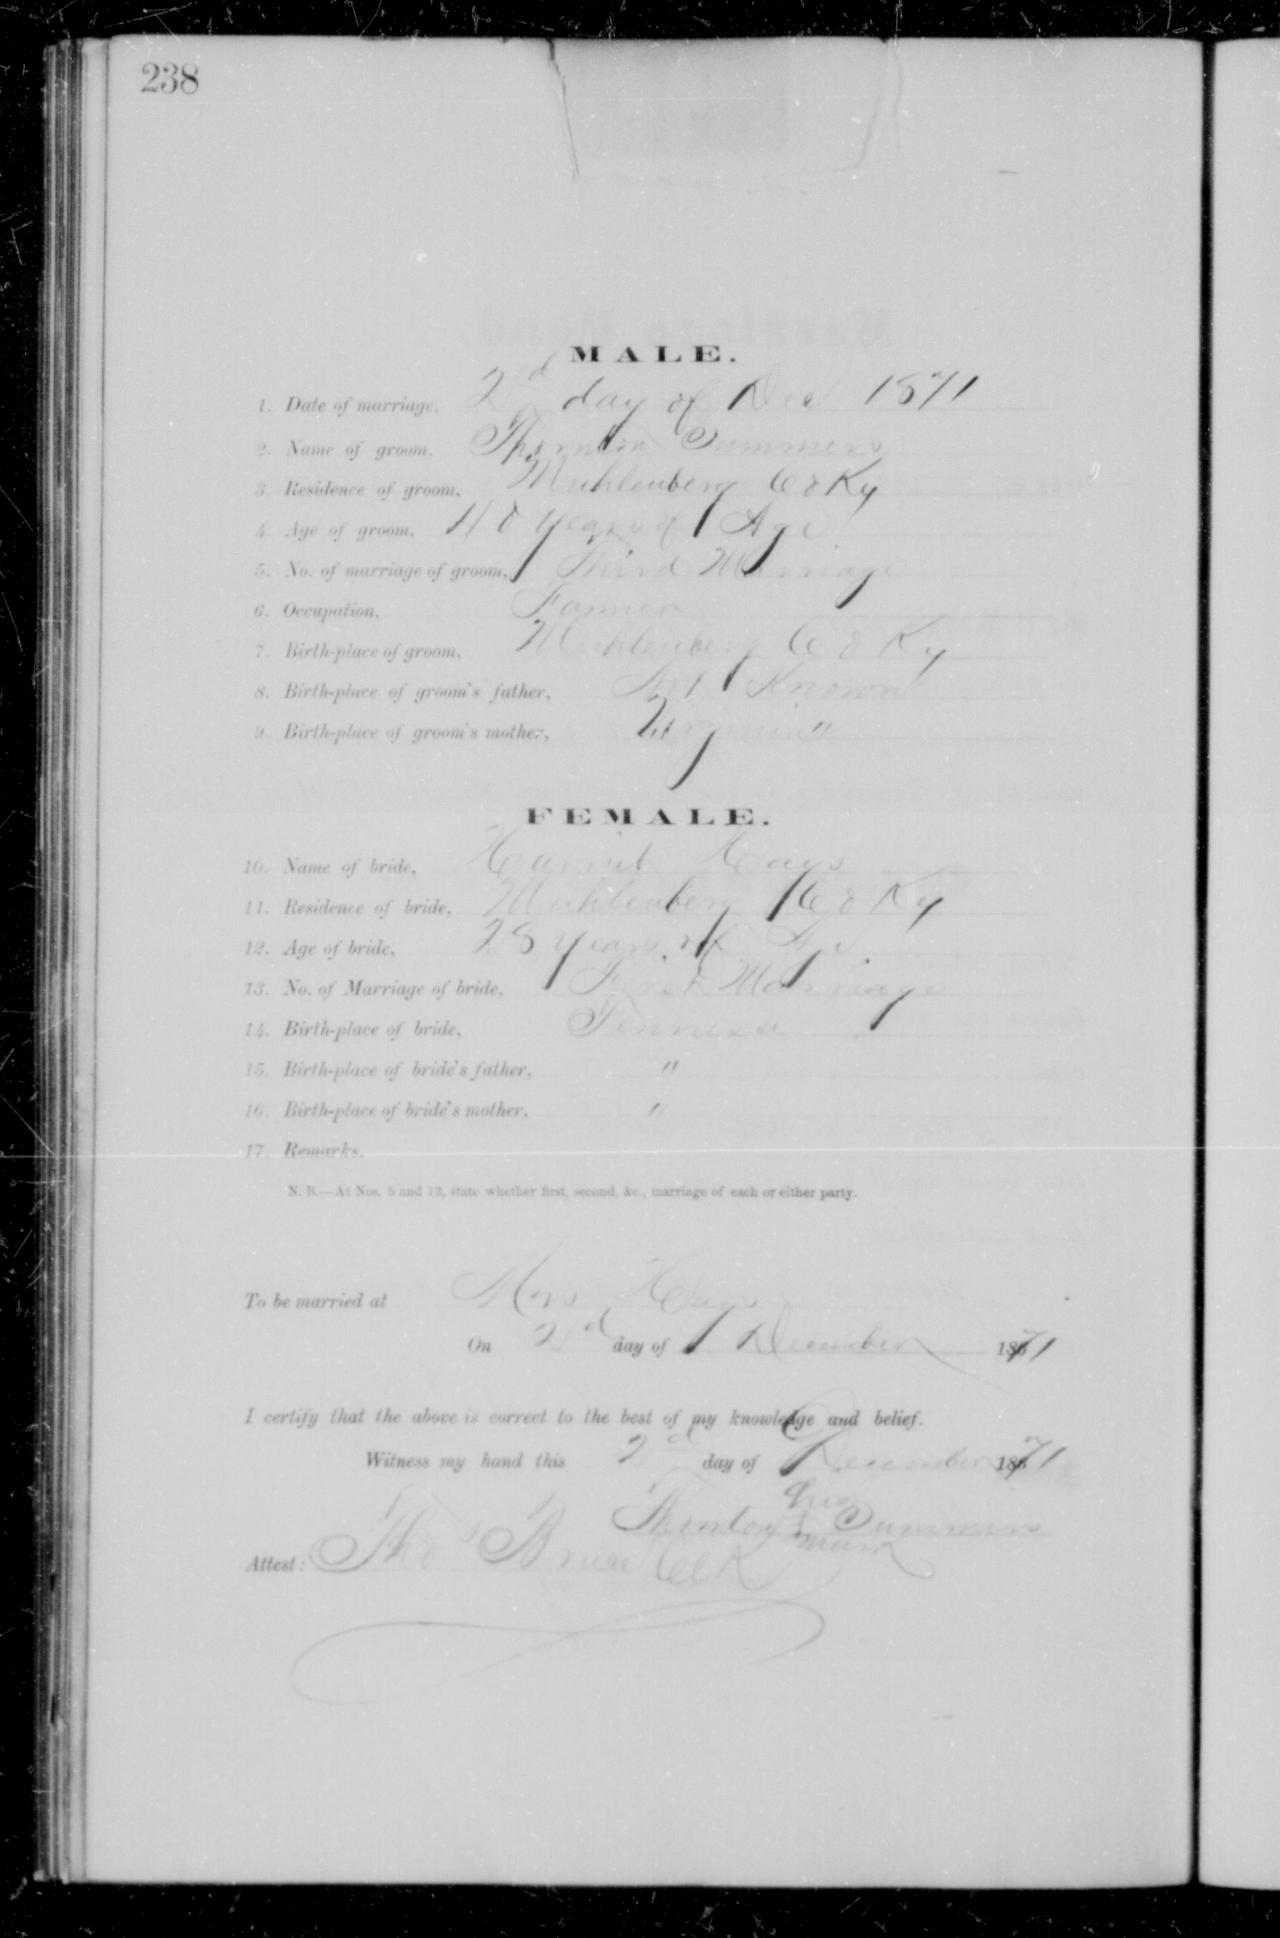 238
MALE.
1. Date of marriage, 2d day of Dec 1871
2. Name of groom, Thornton Summers
3. Residence of groom, Muhlenberg Co Ky
4. Age of groom, 40 years of Age
5. No. of marriage of groom, Third Marriage
6. Occupation, Farmer
7. Birth-place of groom, Muhlenberg Co Ky
8. Birth-place of groom's father, Not Known
9. Birth-place of groom's mother, Virginia "
FEMALE.
10. Name of bride, Harriet Hays
11. Residence of bride, Muhlenberg Co Ky
12. Age of bride, 28 years of Age.
13. No. of Marriage of bride, First Marriage
14. Birth-place of bride, Tennessee
15. Birth-place of bride's father, "
16. Birth-place of bride's mother, "
17. Remarks.
N. B.—At Nos. 5 and 13, state whether first, second, &c., marriage of each or either party.
To be married at Mrs Hays
On 2d day of December 1871
I certify that the above is correct to the best of my knowledge and belief.
Witness my hand this 2d day of December 1871
his
Thornton x Summers
mark
Attest: Tho Bruce Clk